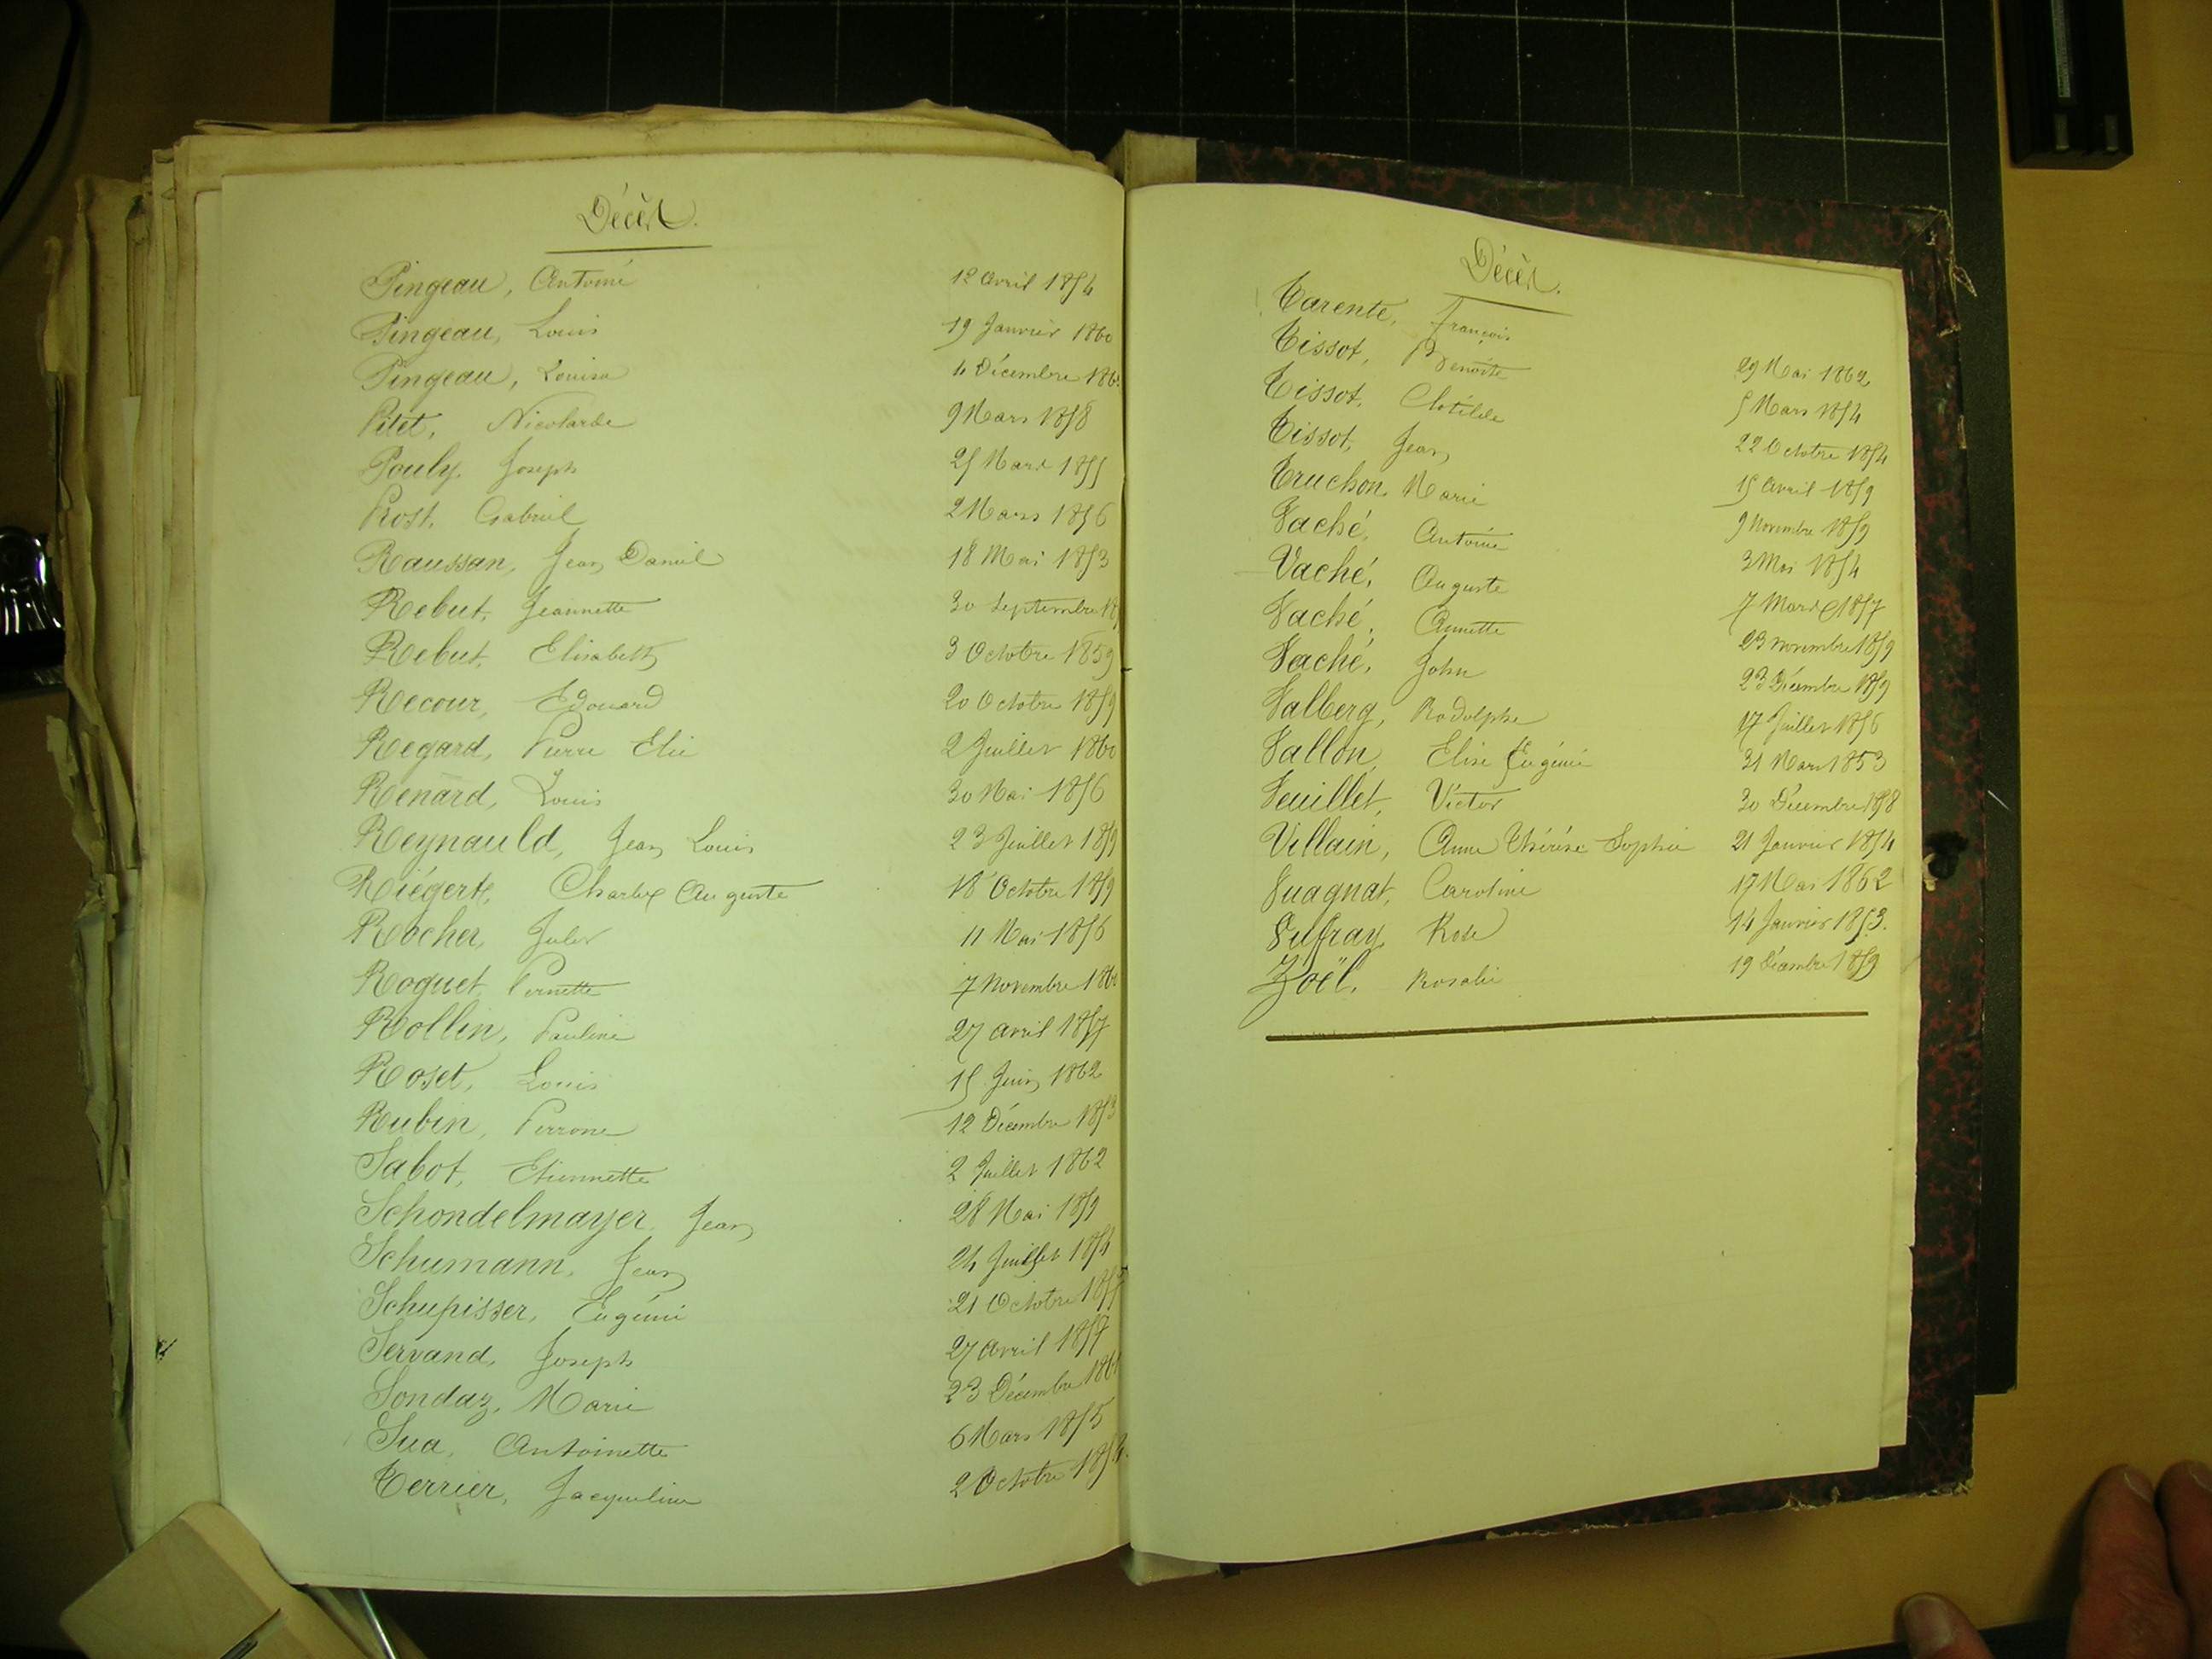 Décès.
Pingeau, Antoine 12 Avril 1854
Pingeau, Louis 19 Janvier 1860
Pingeau, Louisa Décembre
Pitet, Nicolarde 9 Mars 1858
Pouly, Joseph 25 Mars 1855
Prost, Gabriel 2 Mars 1856
Raussan, Jean Daniel 18 Mai 1853
Rebut, Jeannette 30 Septembre
Rebut, Elisabeth 3 Octobre 1859
Recour, Edouard 20 Octobre 1859
Regard, Pierre Elie 2 Juillet 1860
Renard, Louis 30 Mai 1856
Reynauld, Jean Louis 23 Juillet 1859
Riégert, Charles Auguste 18 Octobre 1859
Rocher, Jules 11 Mai 1856
Roguet, Pernette 7 Novembre
Rollin, Pauline 27 Avril 1857
Roset, Louis 15 Juin 1862
Rubin, Perronne 12 Décembre 1853
Sabot, Etiennette 2 Juillet 1862
Schondelmayer Jean 28 Mai 1859
Schumann, Jean 24 Juillet 1854
Schupisser, Eugénie 21 Octobre
Servand, Joseph 27 Avril 1857
Sondaz, Marie 23 Décembre
Sua, Antoinette 6 Mars 1855
Terrier, Jacqueline 2 Octobre
Décès.
Tarente, François 29 Mai 1862
Tissot, Benoîte 5 Mars 1854
Tissot, Clotilde 22 Octobre 1854
Tissot, Jean 15 Avril 1859
Truchon, Marie 9 Novembre 1859
Vaché, Antoine 3 Mai 1854
Vaché, Auguste 7 Mars 1857
Vaché, Annette 23 Novembre 1859
Vaché, John 23 Décembre 1859
Valberg, Rodolphe 17 Juillet 1856
Vallon, Elise Eugénie 31 Mars 1853
Veuillet, Victor 30 Décembre 1858
Villain, Anne Thérèse Sophie 21 Janvier 1854
Vuagnat, Caroline 17 Mai 1862
Vuffray, Rose 14 Janvier 1853.
Zoël, Rosalie 19 Décembre 1859